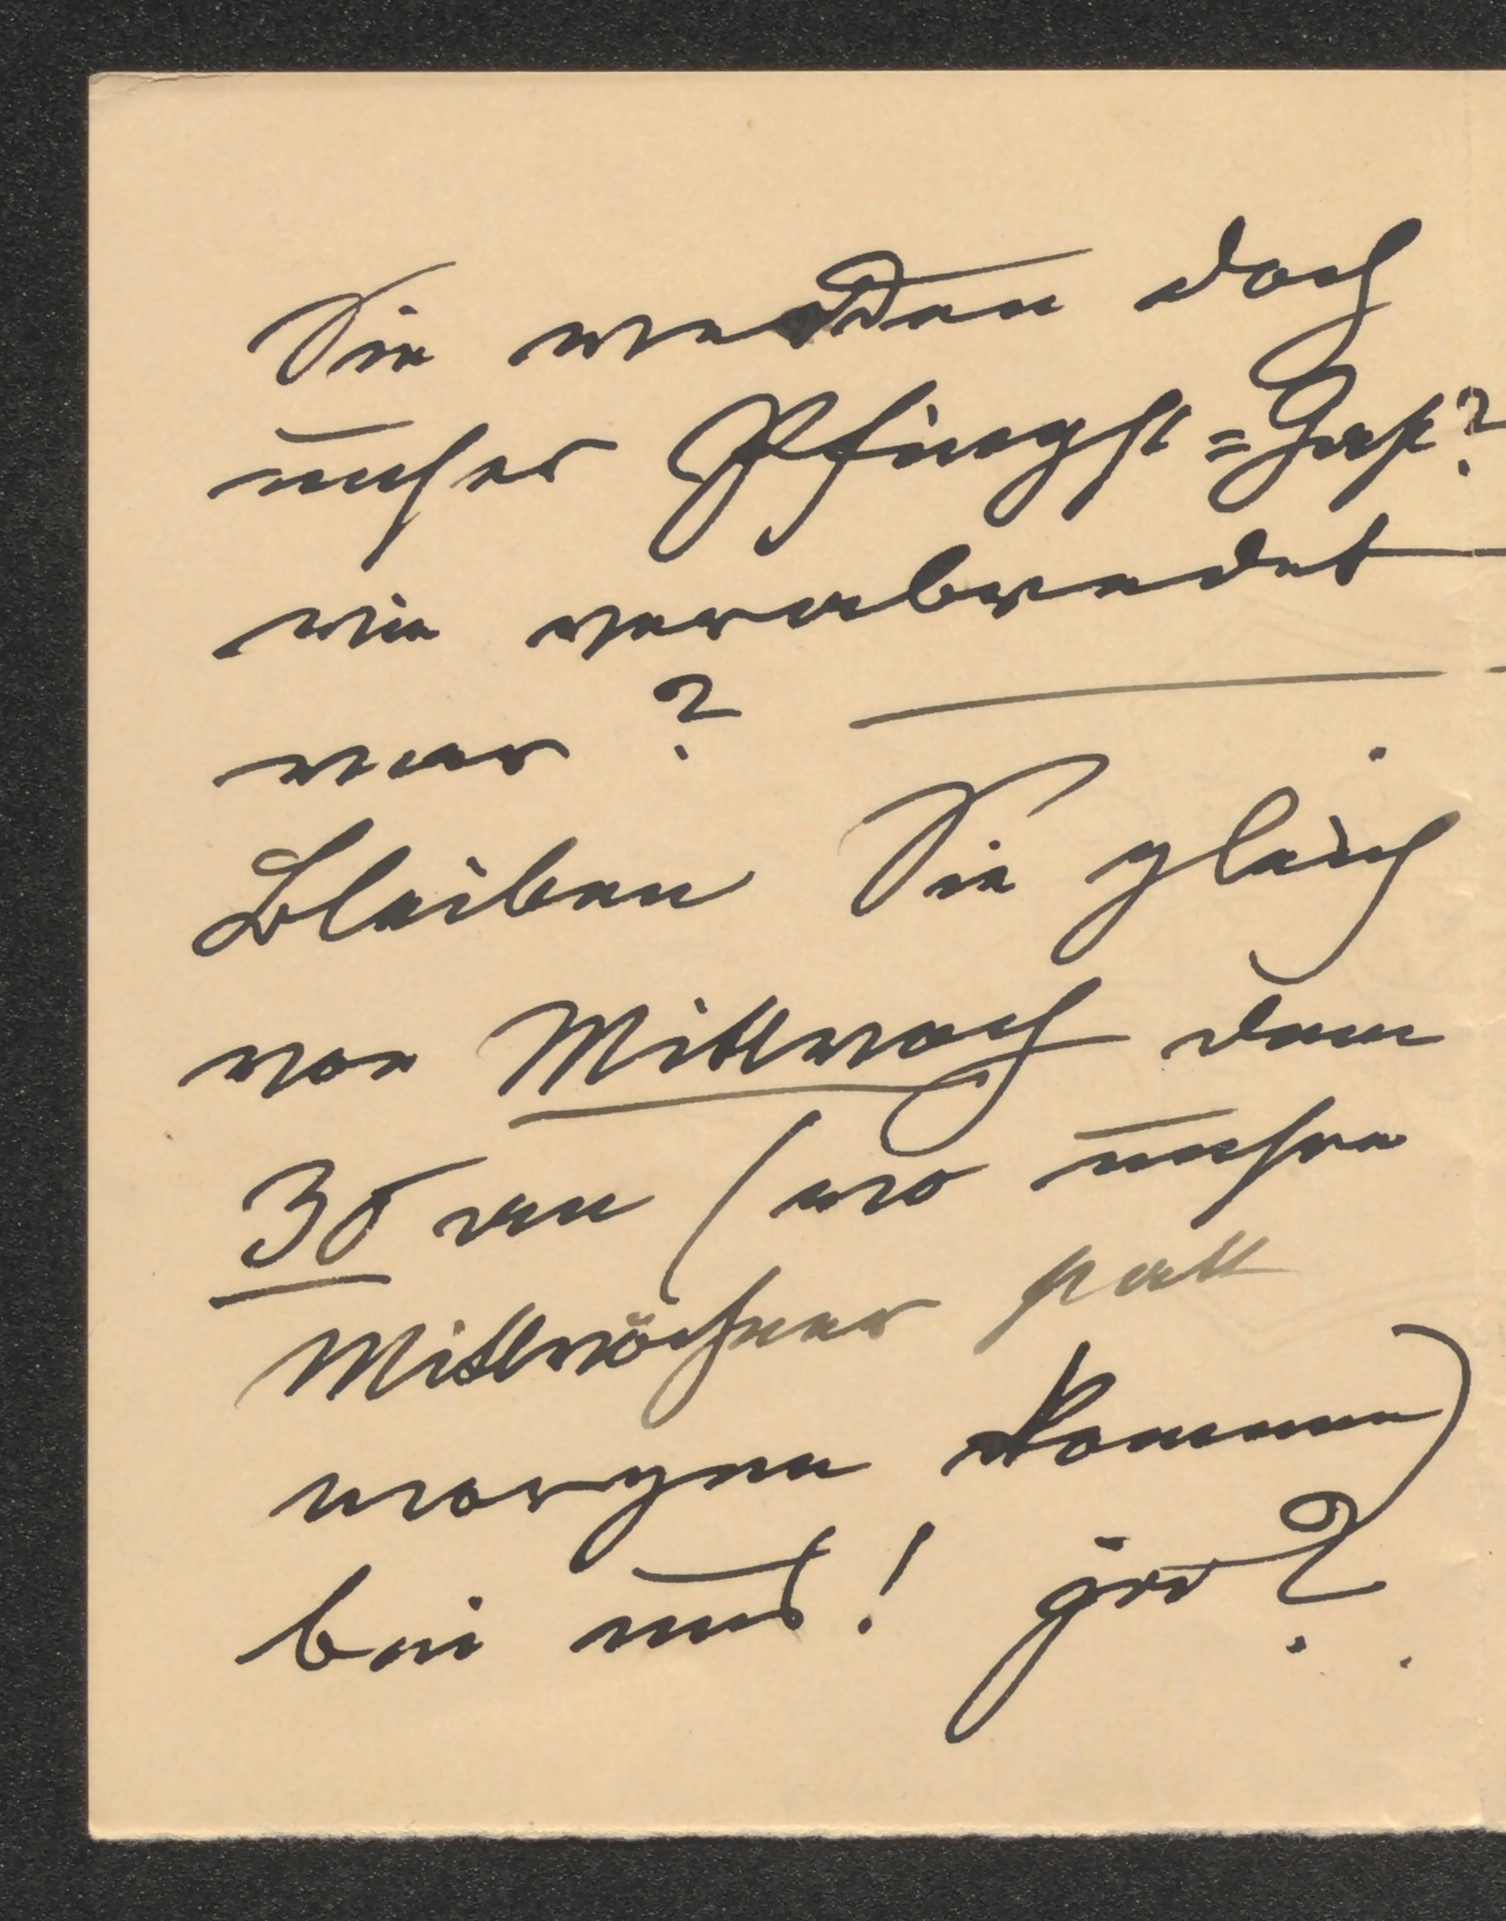 Sie werden doch
unser Pfingst=Gast?
wie verabredet
war?
Bleiben Sie gleich
von Mittwoch dem
30 an (wo unsre
Mittwöcher statt
morgen kommen)
bei uns! ja?